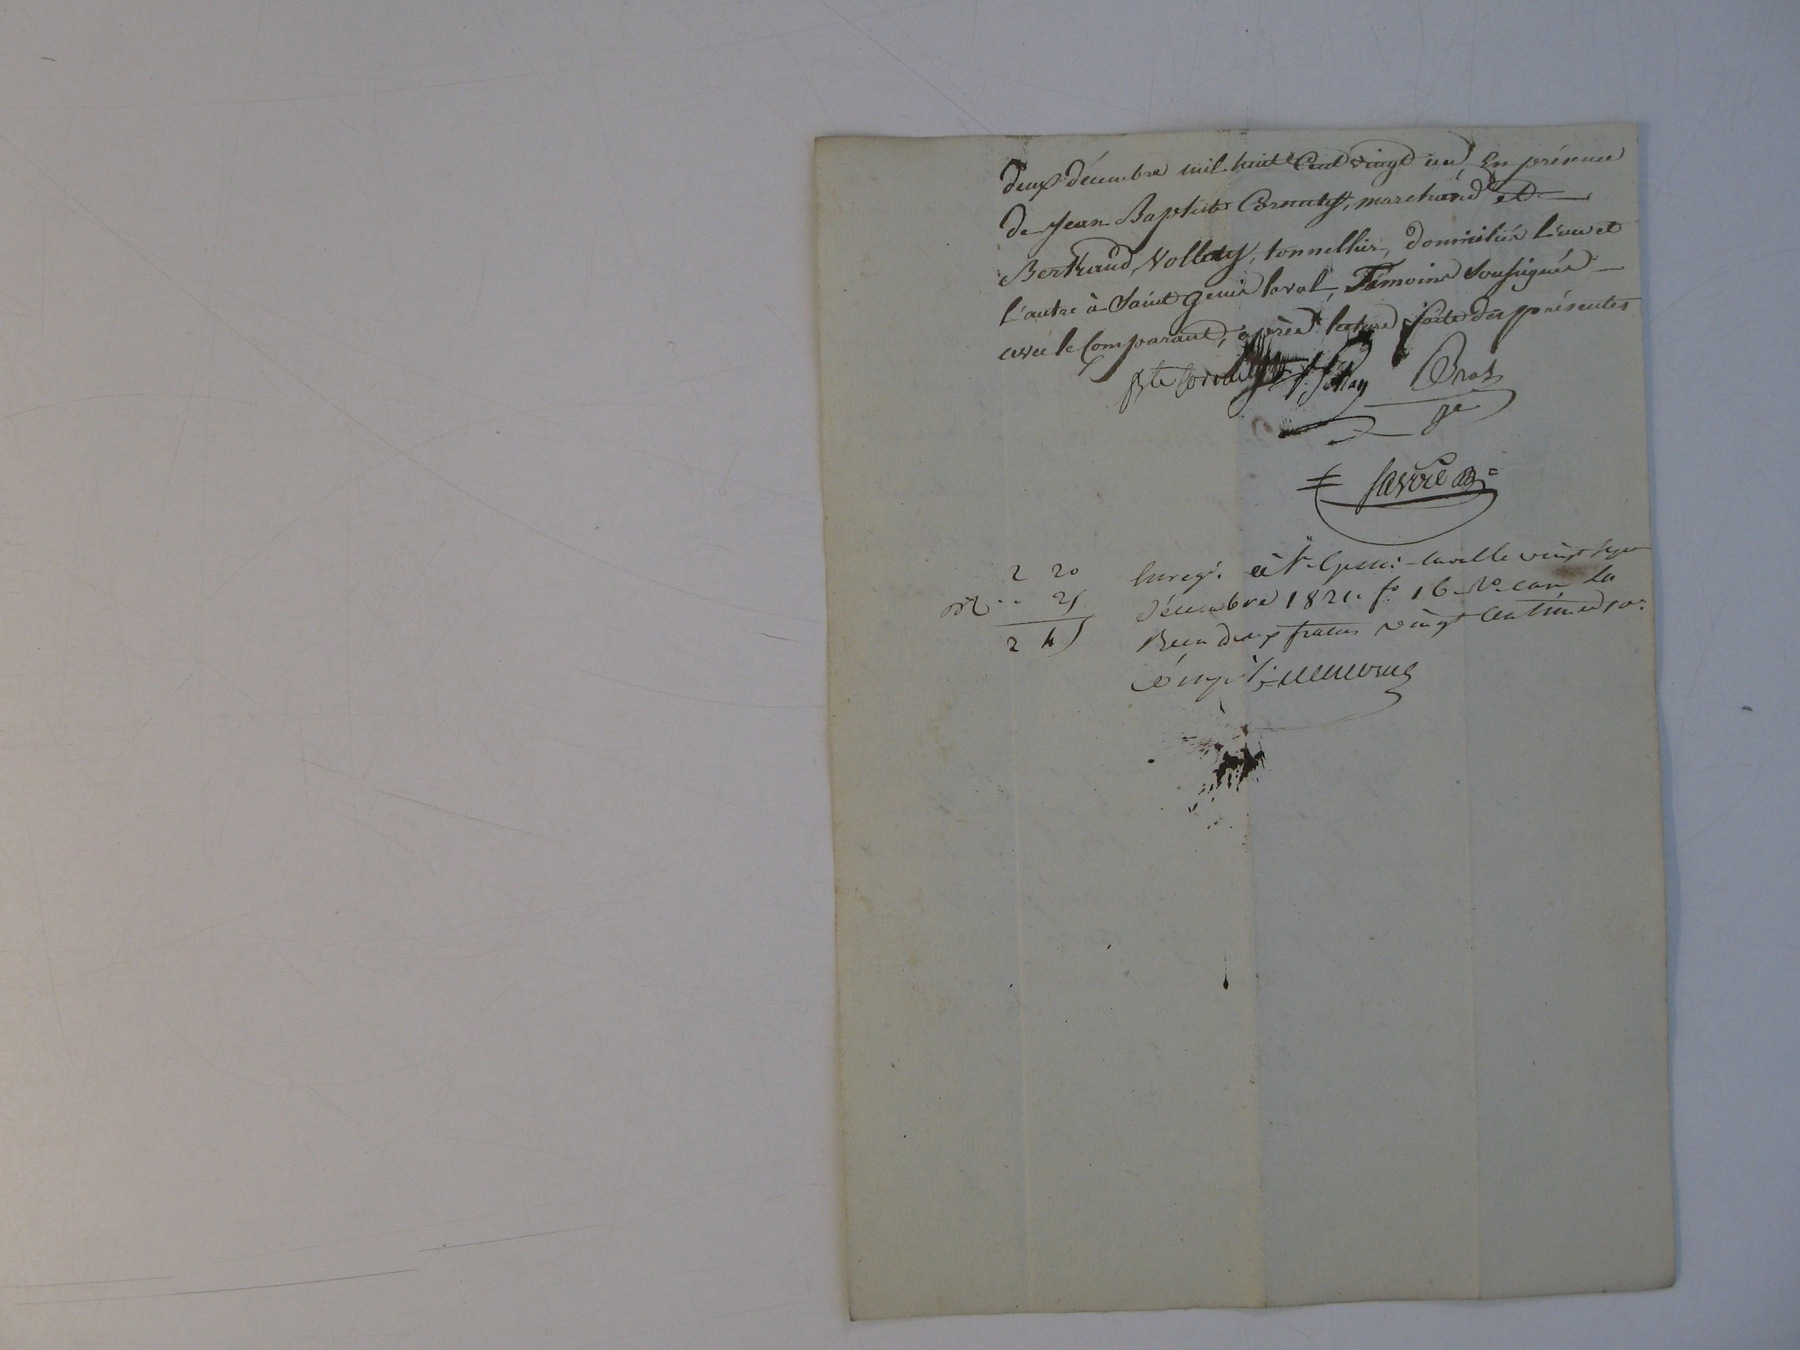 deux décembre mil huit Cent vingt un, En présence
de Jean Baptiste Cornuty, marchand et
Bertrand Vollay, tonnellier, domiciliés L'un et
L'autre à Saint Genis laval, Témoins soussignés
avec le Comparant, après lecture faite des présentes
Bte
Favre
2 20
Enregé. à St Genis-laval le vingt
25
décembre 1821. fo 16 Vo case
2 45
Reçu deux francs vingt centimes